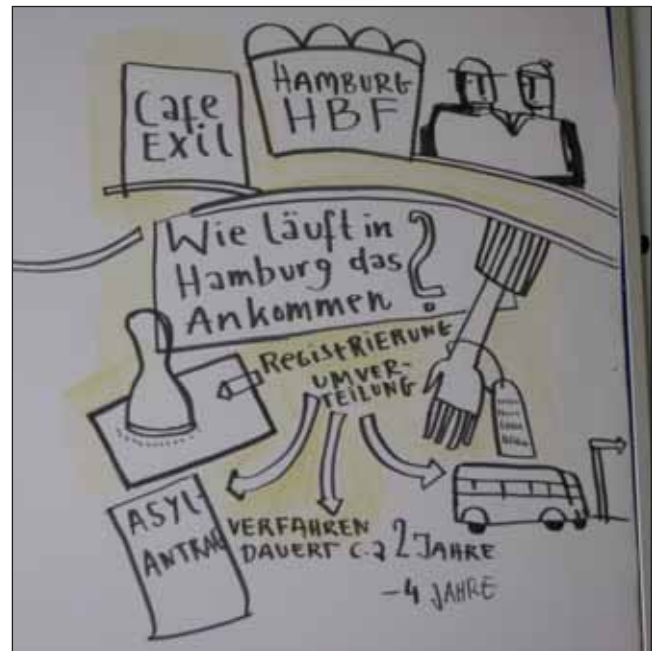 Cafe
Exil
HAMBURG
HBF
Wie läuft in
Hamburg das
Ankommen?
REGISTRIERUNG
UMVER-
TEILUNG
ASYL-
ANTRAG
VERFAHREN
DAUERT C.a 2 JAHRE
-4 JAHRE